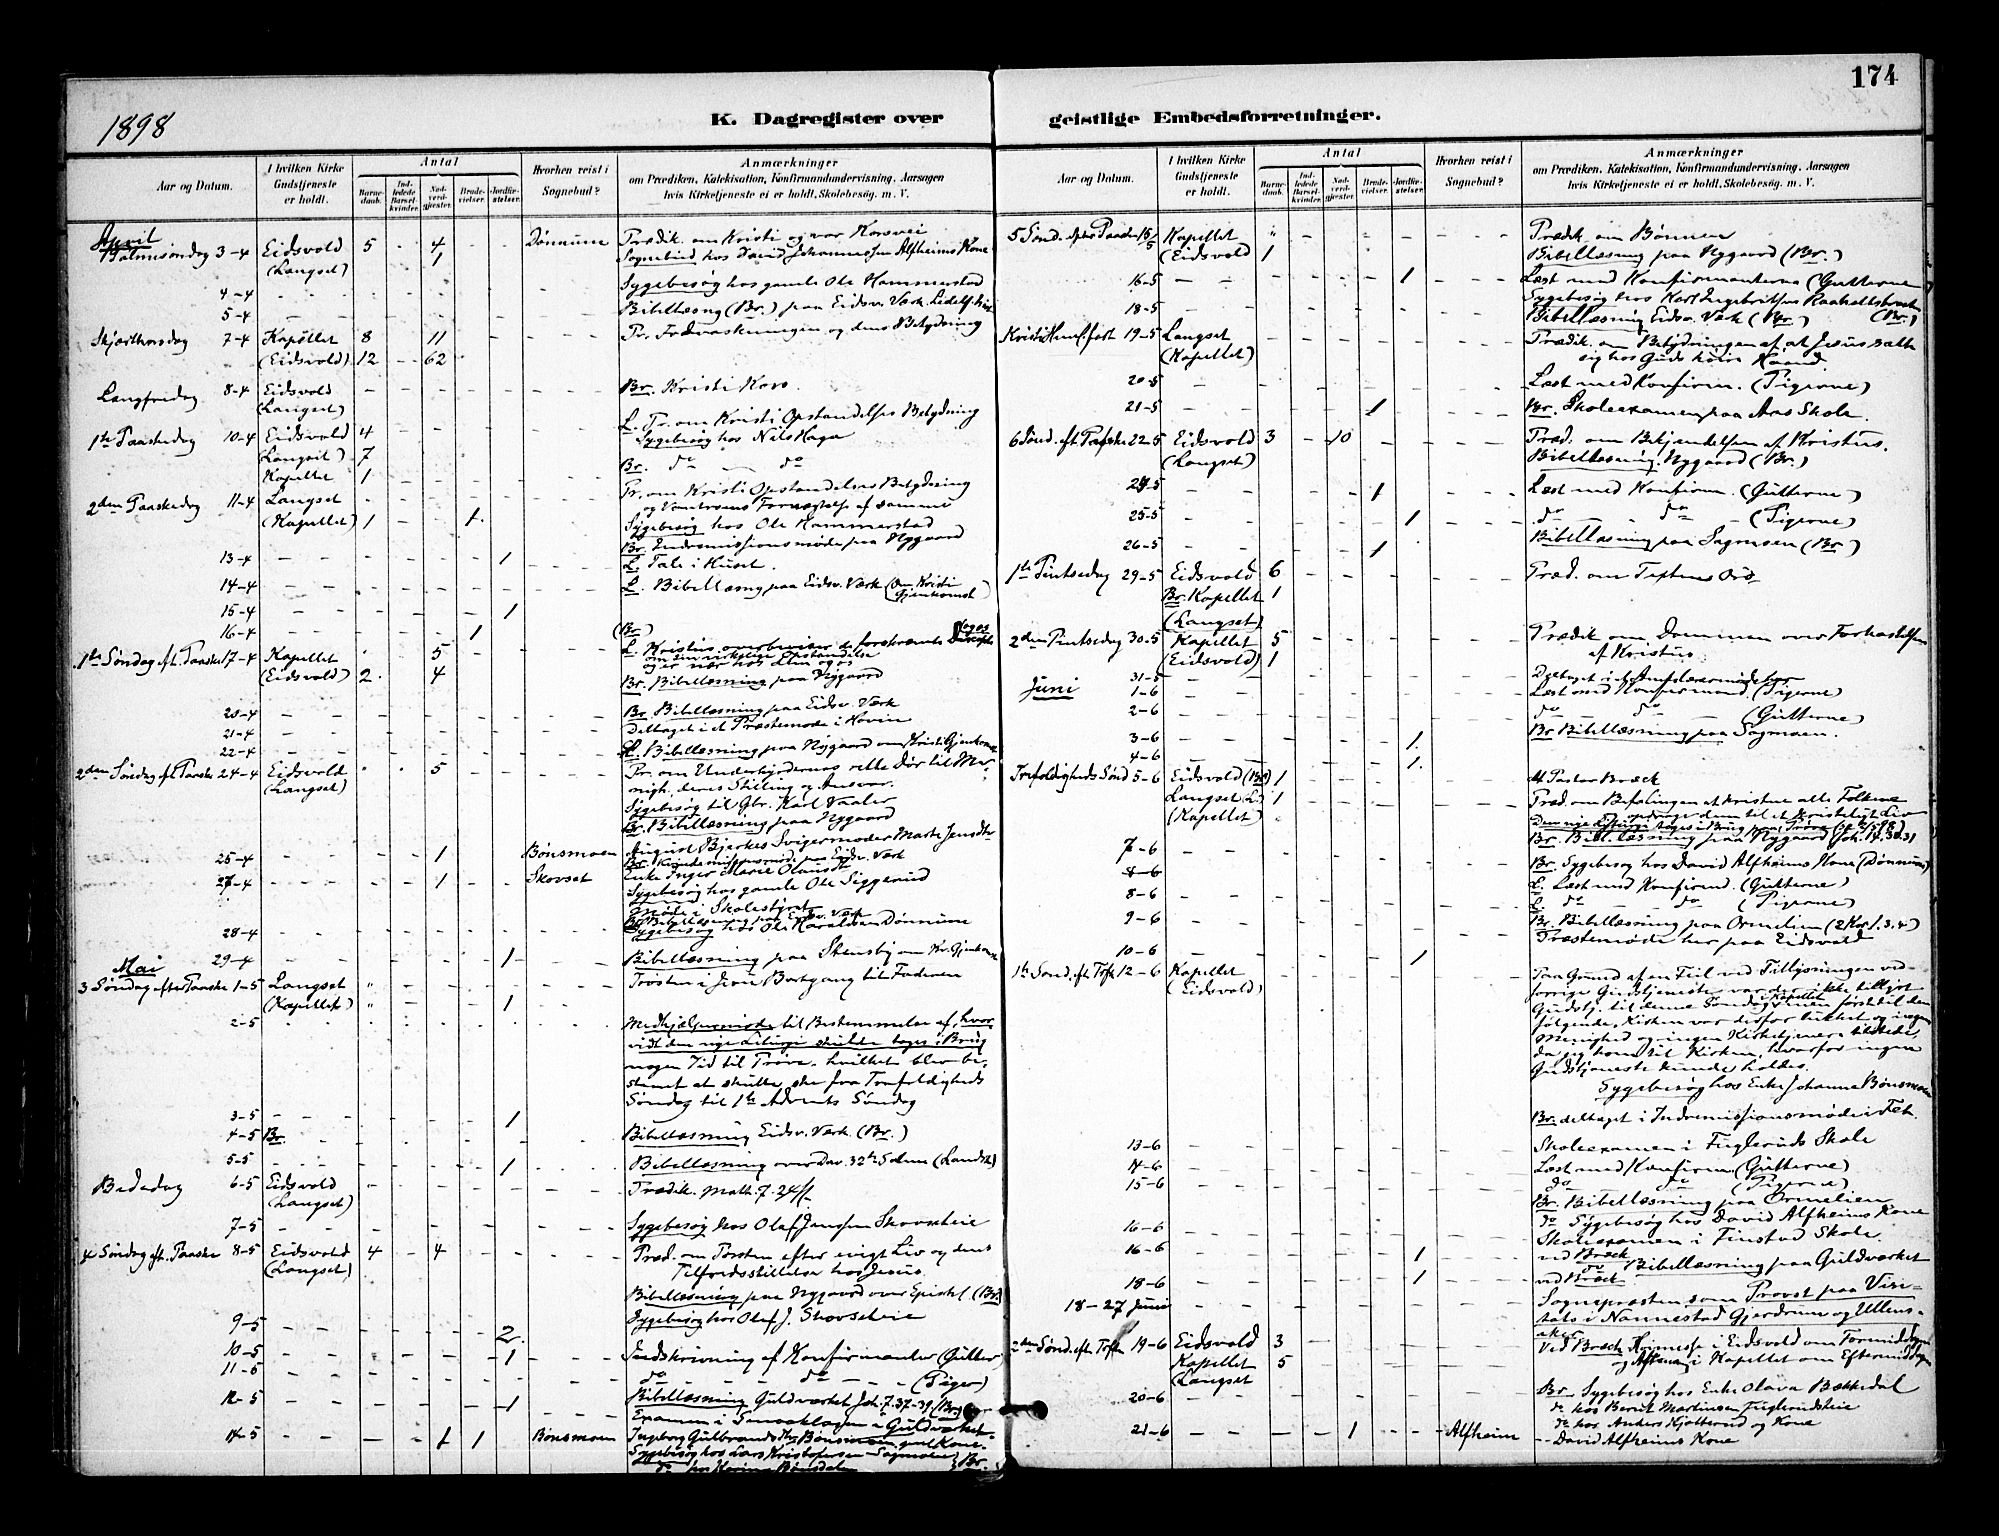 174
1898
K. Dagregister over geistlige Embedsforretninger.
Aar og Datum.
I hvilken Kirke Gudstjeneste er holdt.
Antal
Barnedaab.
Indledede Barselkvinder.
Nadverdgjester.
Brudevielser.
Jordfæstelser.
Hvorhen reist i Sognebud?
Anmærkninger
om Prædiken, Katekisation, Konfirmandundervisning, Aarsagen
hvis Kirketjeneste ei er holdt, Skolebesøg, m. V.
April
Palmesøndag 3-4 Eidsvold 5 - 4 Dønnum Prædik. om Kristi og vor Korsvei
(Langset) 1 Sognebud hos David Johannessen Alfheims Kone
4-4 Sygebesøg hos gamle Ole Hammerstad
5-4 Bibellæsng (Br.) paa Eidsv. Værk
Skjærthorsdag 7-4 Kapellet 8 11 Pr. Fodvaskningen og dens Betydning
(Eidsvold) 12 - - 62
Langfredag 8-4 Eidsvold Br. Kristi Kors.
(Langset)
1ste Paaskedag 10-4 Eidsvold 4 L. Pr. om Kristi Opstandelses Betydning
Sygebesøg hos Nils Haga
(Langset) 7 Br. do do
Kapellet 1
2den Paaskedag 11-4 Langset Pr. om Kristi Opstandelses Betydning
og Vantroens Fornægtelse af samme
(Kapellet) 1 - - 1 Sygebesøg hos Ole Hammerstad
Br. Indremissionsmøde paa Nygaard
13-4 1 L. Tale i Huset.
14-4 L. Bibellæsng paa Eidsv. Værk (Om Kristi Gjenkomst)
15-4 1
16-4 1 (Br.)
1ste Søndag eft. Paaske 17-4 Kapellet 5 L. Kristus overbeviser de forskræmte Disciple
om sin virkelige Opstandelse
og er nær hos dem og os
(Eidsvold) 2 4 Br. Bibellæsning paa Nygaard
20-4 Br. Bibellæsning paa Eidsv. Værk
21-4 Deltaget i et Præstemøde i Hovin
22-4 L. Bibellæsning paa Nygaard om Kristi Gjenkomst
2den Søndag eft. Paaske 24-4 Eidsvold 5 Pr. om Underhyrdernes rette Dør til Me-
(Langset) nigh. deres Stilling og Ansvar.
Sygebesøg til Gbr. Karl Vaaler
Br. Bibellæsning paa Nygaard
25-4 1 Bønsmoen August Bjerkes Svigermoder Marte Jensdtr
Br. Kvindemissionsmøde paa Eidsv. Værk
27-4 1 Skovset Enke Inger Marie Olausdtr
Sygebesøg hos gamle Ole Siggerud
Møde i Skolestyret
Br. Bibellæsning paa Eidsv. Værk
28-4 Sygebesøg hos Ole Haraldsen Dønnum
29-4 1 Bibellæsning paa Stensby om Kr. Gjenkomst
Mai
3 Søndag efter Paaske 1-5 Langset " Trøsten i Jesu Bortgang til Faderen
(Kapellet) " 1
2-5 Medhjælpermøde til Bestemmelse af, hvor
vidt den nye Liturgi skulde tages i Brug
nogen Tid til Prøve, hvilket blev be-
stemt at skulle ske fra Trefoldigheds
Søndag til 1ste Advents Søndag
3-5 1
4-5 Br. Bibellæsning Eidsv. Værk (Br.)
5-5 1 Bibellæsning over Dav. 32te Salme
Bededag 6-5 Eidsvold Prædik. Math. 7.24ff
(Langset)
7-5 Sygebesøg hos Olaf Jenssen Skovseteie
4 Søndag eft. Paaske 8-5 Eidsvold 4 - 4 Præd. om Tørsten efter evigt Liv og dens
(Langset) Tilfredsstillelse hos Jesus.
Bibellæsning paa Nygaard over Epistel (Br.)
9-5 2 Sygebesøg hos Olaf J. Skovseteie
10-5 1 Indskrivning af Konfirmanter (Gutter)
11-5 do do (Piger)
12-5 1 Bibellæsning Guldværket Joh. 7.37-39 (Br.)
Examen i Smaaklassen i Guldværket
14-5 1 1 Bønsmoen Ingeborg Gulbrandsdtr Bønsmoen
Sygebesøg hos Lars Kristofersen
do hos } Br.
Aar og Datum.
I hvilken Kirke Gudstjeneste er holdt.
Antal
Barnedaab.
Indledede Barselkvinder.
Nadverdgjester.
Brudevielser.
Jordfæstelser.
Hvorhen reist i Sognebud?
Anmærkninger
om Prædiken, Katekisation, Konfirmandundervisning, Aarsagen
hvis Kirketjeneste ei er holdt, Skolebesøg, m. V.
5 Sønd. efter Paaske 15/5 Kapellet " Prædik. om Bønnen
(Eidsvold 1 Bibellæsning paa Nygaard (Br.)
16-5 1 Læst med Konfirmanterne (Gutterne
Sygebesøg hos Karl Ingebritsen (Br.)
18-5 Bibellæsning Eidsv. Værk (Br.)
Kristi Himf. fest 19-5 Langset Prædik. om Betydningen af at Jesus satte
(Kapellet) sig hos Guds høire Haand.
20-5 Læst med Konfirm. (Pigerne)
21-5 1 Br. Skoleexamen paa Aas Skole.
6 Sønd. eft. Paaske 22-5 Eidsvold 3 - 10 Præd. om Bekjendelsen af Kristus.
(Langset) Bibellæsning. Nygaard (Br.)
24-5 1 Læst med Konfirm. (Gutterne)
25-5 1 do do (Pigerne)
26-5 1 Bibellæsning paa Sagmoen (Br.)
1ste Pintsedag 29-5 Eidsvold 6 Præd. om Textens Ord
Br. Kapellet 1
(Langset)
2den Pintsedag 30-5 Kapellet 5 Prædik om Dommen over Forkastelsen
(Eidsvold) 1 af Kristus
31-5 Deltaget i et
Juni 1-6 Læst med Konfirmand. (Pigerne)
2-6 do do (Gutterne)
3-6 1 Br. Bibellæsning paa Sagmoen.
4-6 1
Trefoldigheds Sønd 5-6 Eidsvold (Br) 1 ved Pastor Bræck
Langset (L.) 1 Præd. om Befalingen at kristne alle Folkene
(Kapellet)
Br. Bibellæsning paa Nygaard
7-6 Br. Sygebesøg hos David Alfheims Kone (Dønnum)
8-6 L. Læst med Konfirmd. (Gutterne)
8-6 L. do do (Pigerne)
9-6 Br. Bibellæsning paa Ormelien (2 Kor. 1.3.4)
10-6 1 Præstemøde her paa Eidsvold
1ste Sønd. eft. Tref. 12-6 Kapellet Paa Grund af en Feil ved Tillysningen ved-
(Eidsvold) forrige Gudstjeneste var der ikke tillyst
Gudstj. til denne Søndag i Kapellet, men først til den
følgende, Kirken var derfor lukket og ingen
Menighed og ingen Kirketjenere tilstede,
da jeg kom til Kirken, hvorfor ingen
Gudstjeneste kunde holdes.
Sygebesøg hos Enke Johanne Bønsmoen
Br. deltaget i Indremissionsmøde i Fet.
13-6 Skoleexamen i Fuglerud Skole
14-6 Læst med Konfirm. (Gutterne)
15-6 do do (Pigerne)
Br. Bibellæsning paa Ormelien
16-6 do Sygebesøg hos David Alfheims Kone
Skoleexamen i Finstad Skole
16-6 1 ved Bræck
do Bibellæsning paa Guldværket
18-6 1 ved Bræck
18-27 Juni Sognepræsten som Provst paa Visi-
tats i Nannestad Gjerdrum og Ullens-
aker
2den Sønd. eft. Tref. 19-6 Eidsvold 3 Ved Bræck i Eidsvold om Formiddagen
Kapellet 5 og i Kapellet om Eftermiddagen
(Langset
20-6 Br. Sygebesøg hos Enke Olava Bækkedal
do hos Bernt Martinsen Fuglerudseie
do hos Anders og Kone
21-6 1 Alfheim - David Alfheims Kone